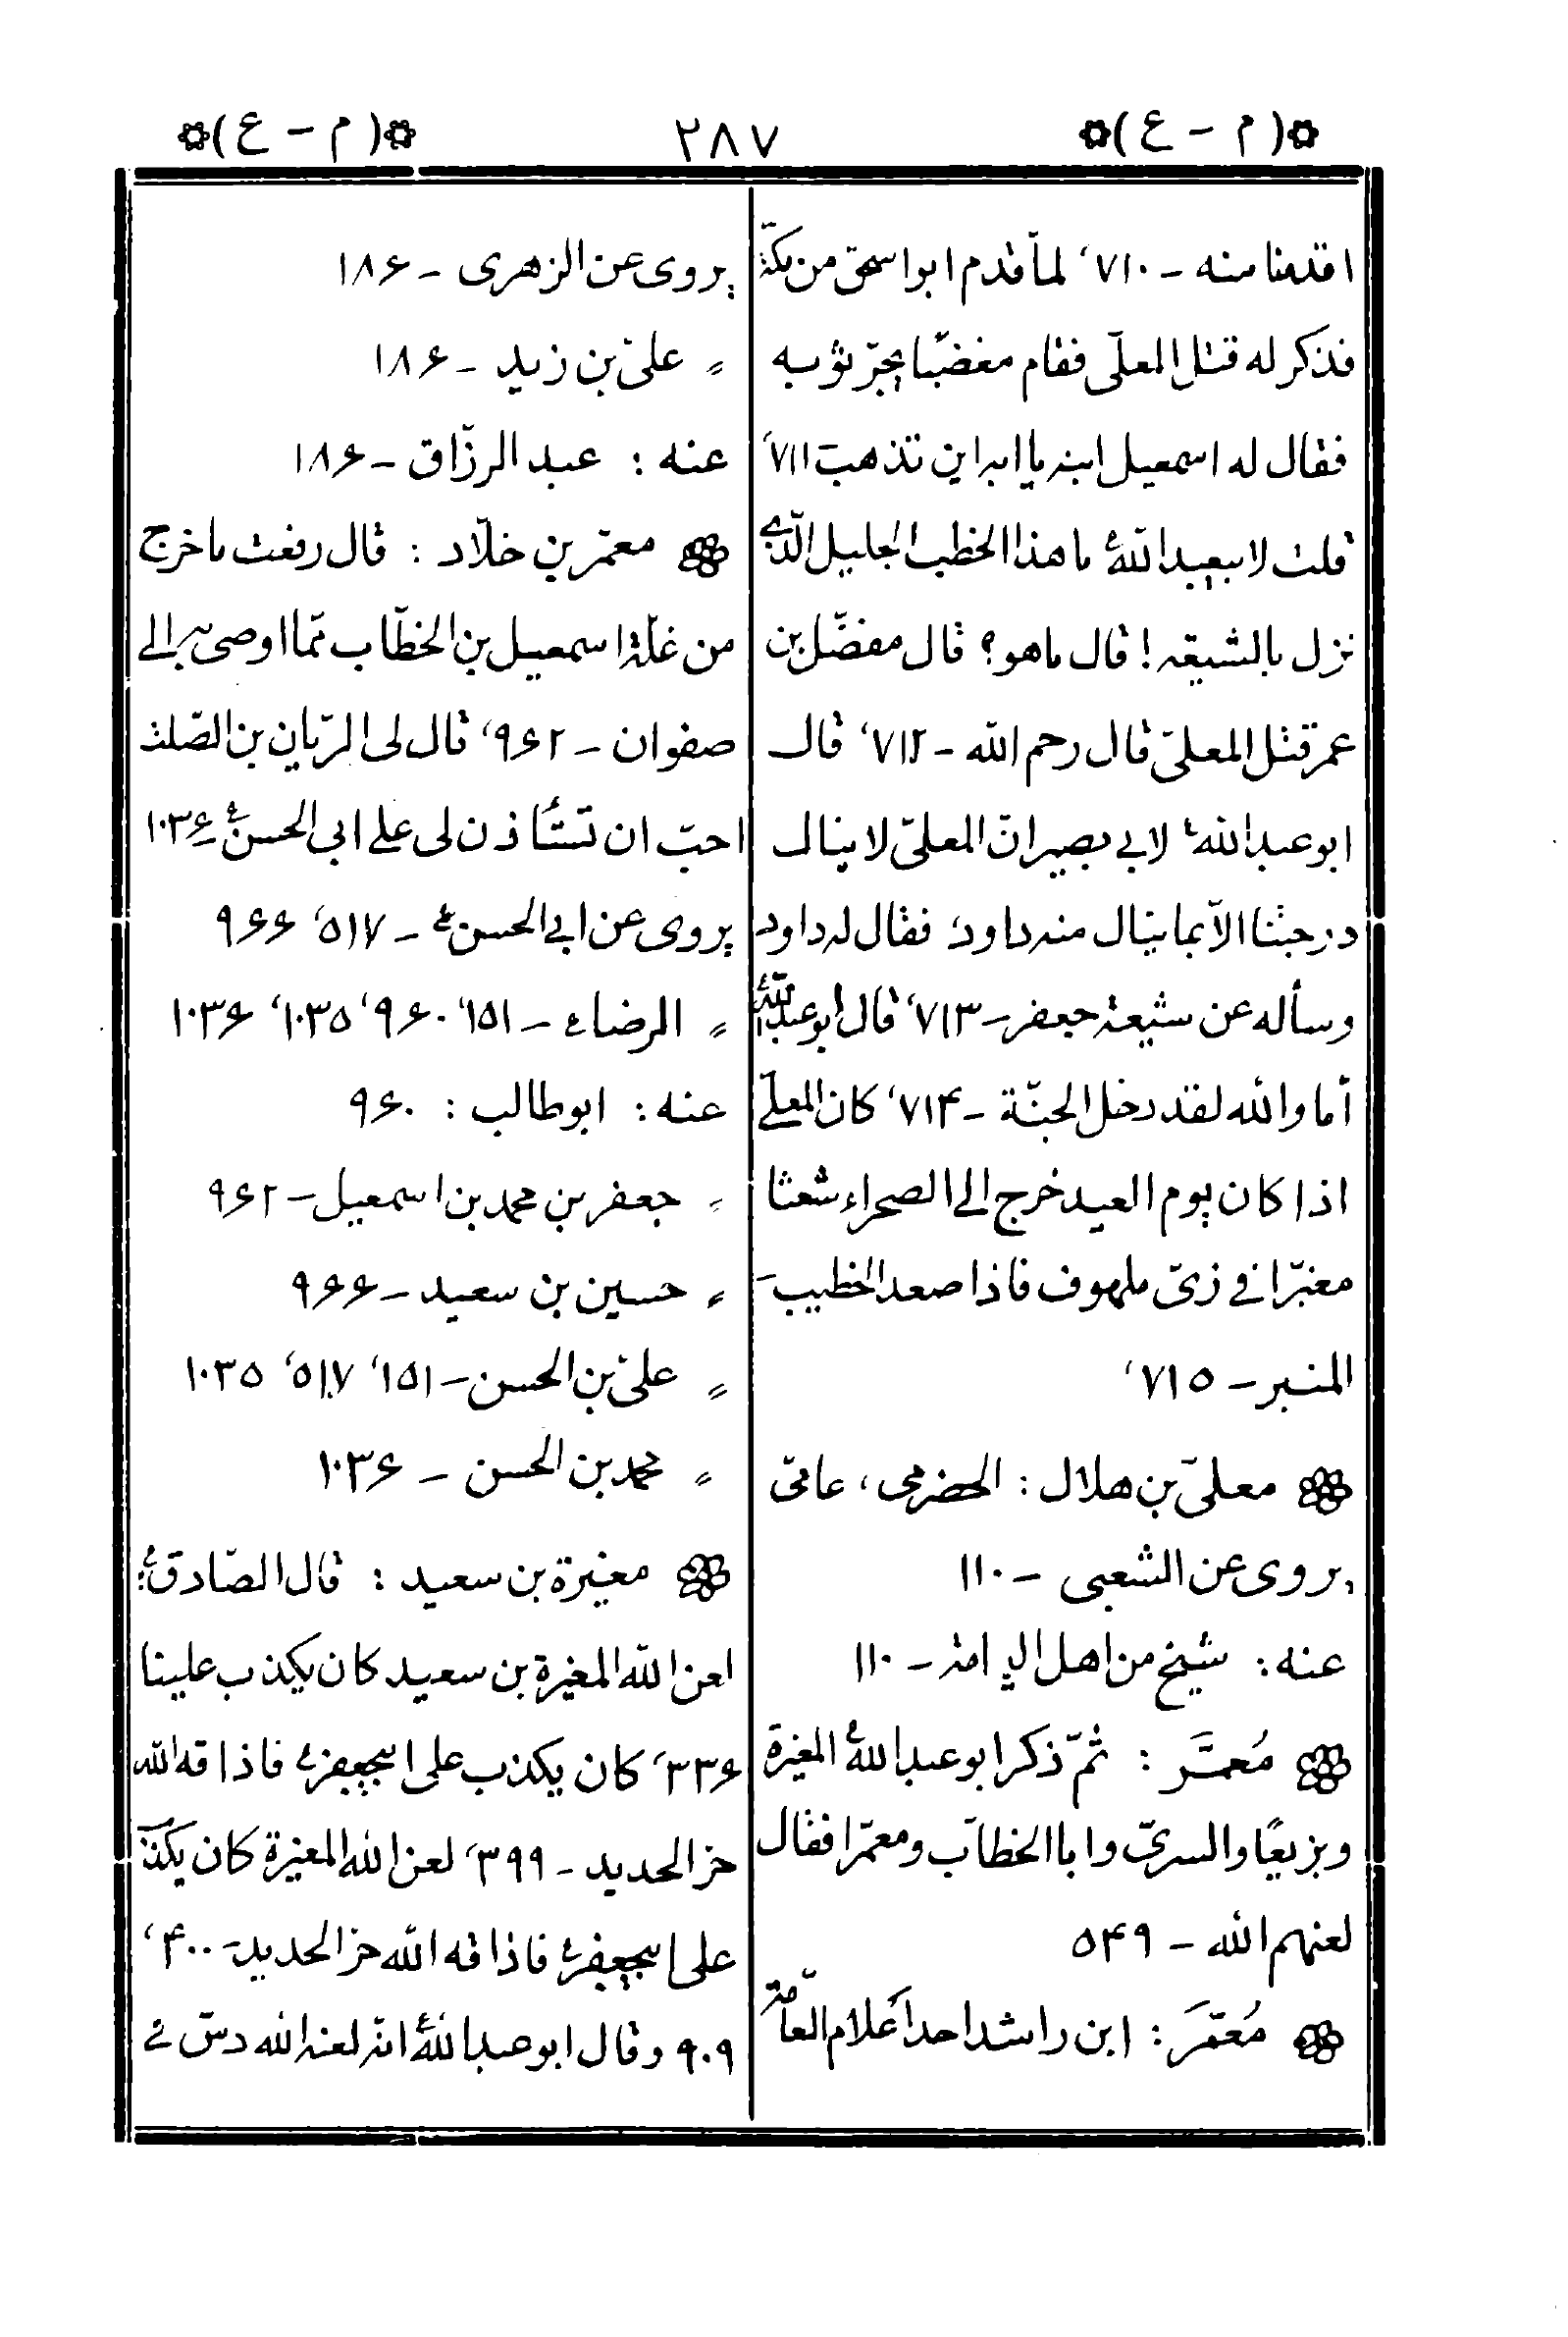 ❁(م - ع)❁ ٢٨٧ ❁(م - ع)❁
اقدمنا منه - ٧١٠، لمّا قدم ابواسحق من مكّة
فذكر له قتل المعلّى فقام مغضبًا يجرّ ثوبه
فقال له اسمعيل ابنه يا ابه اين تذهب ٧١١،
قلت لابيعبداللهؑ ما هذا الخطب الجليل الّذي
نزل بالشيعة! قال ماهو؟ قال مفضّل بن
عمر قتل المعلىّ قال رحم الله - ٧١٢، قال
ابو عبداللهؑ لابي بصير انّ المعلىّ لا ينال
درجتنا الاّ بما ينال منه داود؛ فقال له داود
وسأله عن شيعة جعفر - ٧١٣، قال ابو عبداللهؑ
أما والله لقد دخل الجنّة - ٧١۴، كان المعلّى
اذا كان يوم العيد خرج الى الصحراء شعثا
مغبرّا في زىّ ملهوف فاذا صعد الخطيب
المنبر - ٧١۵،
❁ معلىّ بن هلال : الحضرمى، عامّى
يروى عن الشعبى - ١١٠
عنه : شيخ من اهل اليمامة - ١١٠
❁ مُعمَّر : ثمّ ذكر ابو عبداللهؑ المغيرة
وبزيعًا والسرىّ وابا الخطاّب ومعمّرا فقال
لعنهم الله - ۵۴٩
❁ مُعمَّر : ابن راشد احد أعلام العامّة
يروى عن الزهرى - ١٨۶
〃 علىّ بن زيد - ١٨۶
عنه : عبد الرزّاق - ١٨۶
❁ معمّر بن خلاّد : قال رفعت ما خرج
من غلّة اسمعيل بن الخطّاب ممّا اوصى به الى
صفوان - ٩۶٢، قال لى الريّان بن الصّلت
احبّ ان تستأذن لى على ابى الحسنؑ - ١٠٣۶
يروى عن ابي الحسنؑ - ۵١٧، ٩۶۶
〃 الرضاؑ - ١۵١، ٩۶٠، ١٠٣۵، ١٠٣۶
عنه : ابوطالب : ٩۶٠
〃 جعفر بن محمد بن اسمعيل - ٩۶٢
〃 حسين بن سعيد - ٩۶۶
〃 علىّ بن الحسن - ١۵١، ۵١٧، ١٠٣۵
〃 محمد بن الحسن - ١٠٣۶
❁ مغيرة بن سعيد : قال الصّادقؑ :
لعن الله المغيرة بن سعيد كان يكذب علينا
٣٣۶، كان يكذب على ابيجعفرؑ فاذاقه الله
حرّ الحديد - ٣٩٩، لعن الله المغيرة كان يكذب
على ابيجعفرؑ فاذاقه الله حرّ الحديد - ۴٠٠،
٩٠٩ وقال ابو عبداللهؑ انّه لعنه الله دسّ في